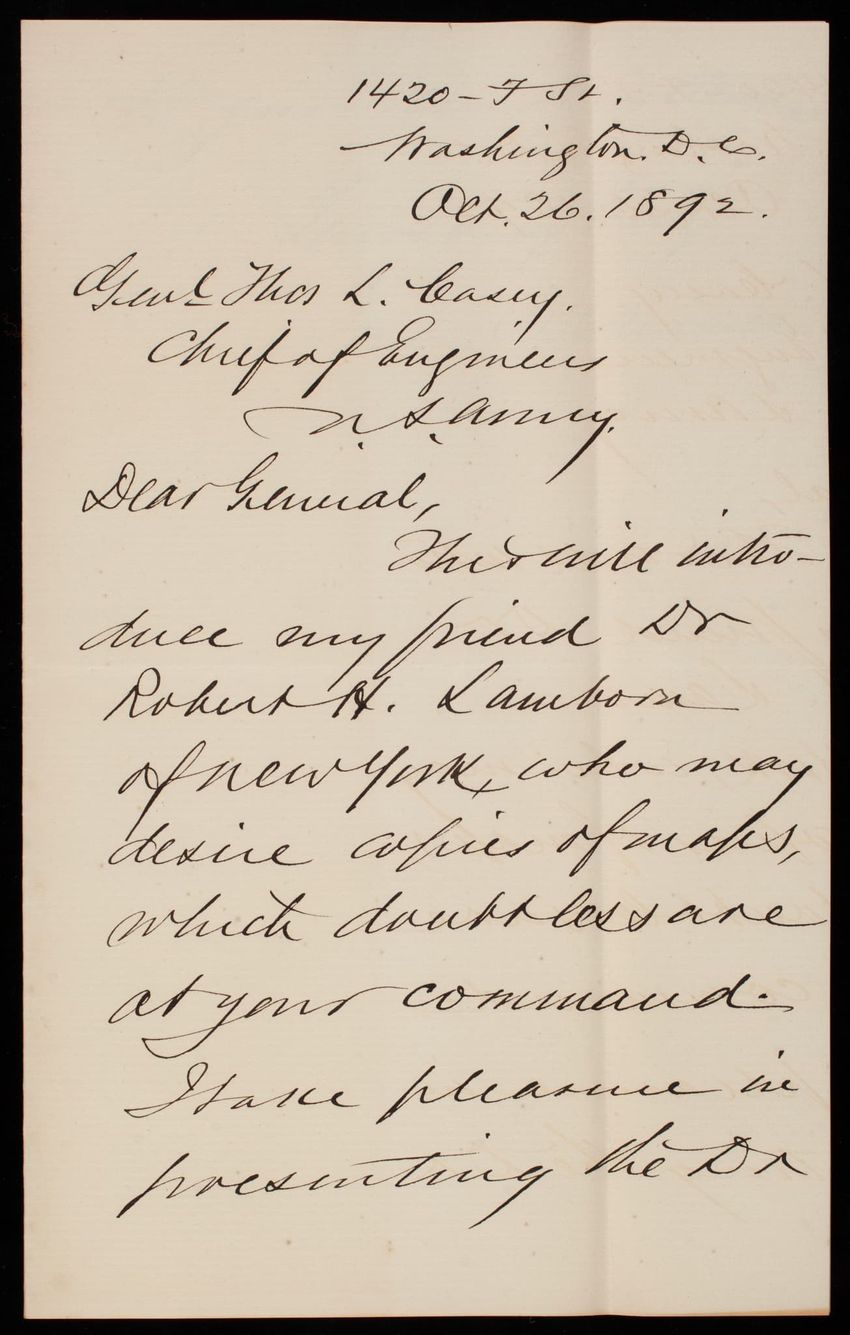 1420 - F St.
Washington. D.C.
Oct. 26. 1892.
Genl Thos L. Casey.
Chief of Engineers
U.S. Army.
Dear General,
This will intro-
duce my friend Dr
Robert H. Lamborn
of New York, who may
desire copies of maps,
which doubtless are
at your command.
I take pleasure in
presenting the Dr